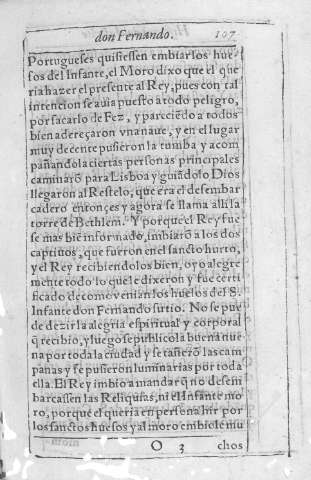 don Fernando. 107
Portugueses quisiessen embiarlos hue-
sos del Infante, el Moro dixo que el que
ria hazer el presente al Rey, pues con tal
intencion se auia puesto a todo peligro,
por sacarlo de Fez, y pareciẽdo a todos
bien adereçaron vna naue, y en el lugar
muy decente pusieron la tumba y acom
pañandola ciertas personas principales
caminarõ para Lisboa y guiãdolo Dios
llegaron al Restelo, que era el desembar
cadero entonçes y agora se llama alli la
torre de Bethlem. Y porque el Rey fue
se mas biẽ informado, imbiarõ a los dos
captiuos, que fueron en el sancto hurto,
y el Rey recibiendolos bien, oyo alegre
mente todo lo que le dixeron y fue certi
ficado de como venian los huesos del S.
Infante don Fernando su tio. No se pue
de dezir la alegria espiritual y corporal
q̃ recibio, y luego se publico la buena nue
na por toda la ciudad y se tañerõ las cam
panas y se pusieron luminarias por toda
ella. El Rey imbio a mandar q̃ no desem
barcassen las Reliquias, ni el Infante mo
ro, porque el queria en persona hir por
los sanctos huesos y al moro embiole mu
O 3 chos